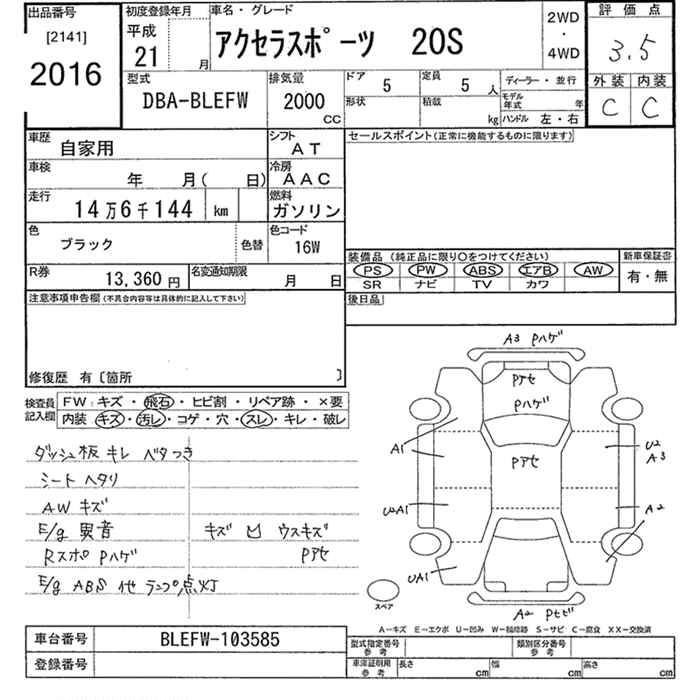 出品番号
[2141]
2016
初度登録年月
平成
21 月
車名・グレード
アクセラスポーツ 20S
2WD
・
4WD
評価点
3.5
外装 内装
C C
型式
DBA-BLEFW
排気量
2000
CC
ドア 5
定員 5 人
形状
積載 kg
ディーラー・並行
モデル年式 年
ハンドル 左・右
車歴
自家用
シフト
AT
車検
年 月( 日)
冷房
AAC
走行
14万6千144 km
燃料
ガソリン
色
ブラック
色替
色コード
16W
R券
13,360 円
名変通知期限
月 日
セールスポイント(正常に機能するものに限ります)
装備品 (純正品に限り○をつけてください)
PS PW ABS エアB AW
SR ナビ TV カワ
新車保証書
有・無
後日品
注意事項申告欄(不具合内容等は具体的に記入して下さい)
修復歴 有〔箇所 〕
検査員記入欄
FW:キズ・飛石・ヒビ割・リペア跡・×要
内装 キズ・汚レ・コゲ・穴・スレ・キレ・破レ
ダッシュ板 キレ ベタつき
シートヘタリ
AWキズ
E/g 異音
キズ 凹 ウスキズ
Rスポ Pハゲ
Pアセ
E/g ABS 他 ランプ点灯
A3 Pハゲ
Pアセ
Pハゲ
Pアセ
A1
U2
A3
U2A1
A2
UA1
A2 Pセビ
スペア
A-キズ E-エクボ U-凹み W-補修跡 S-サビ C-腐食 XX-交換済
車台番号
BLEFW-103585
登録番号
型式指定番号
参考
類別区分番号
参考
車庫証明用
参考
長さ cm
幅 cm
高さ cm